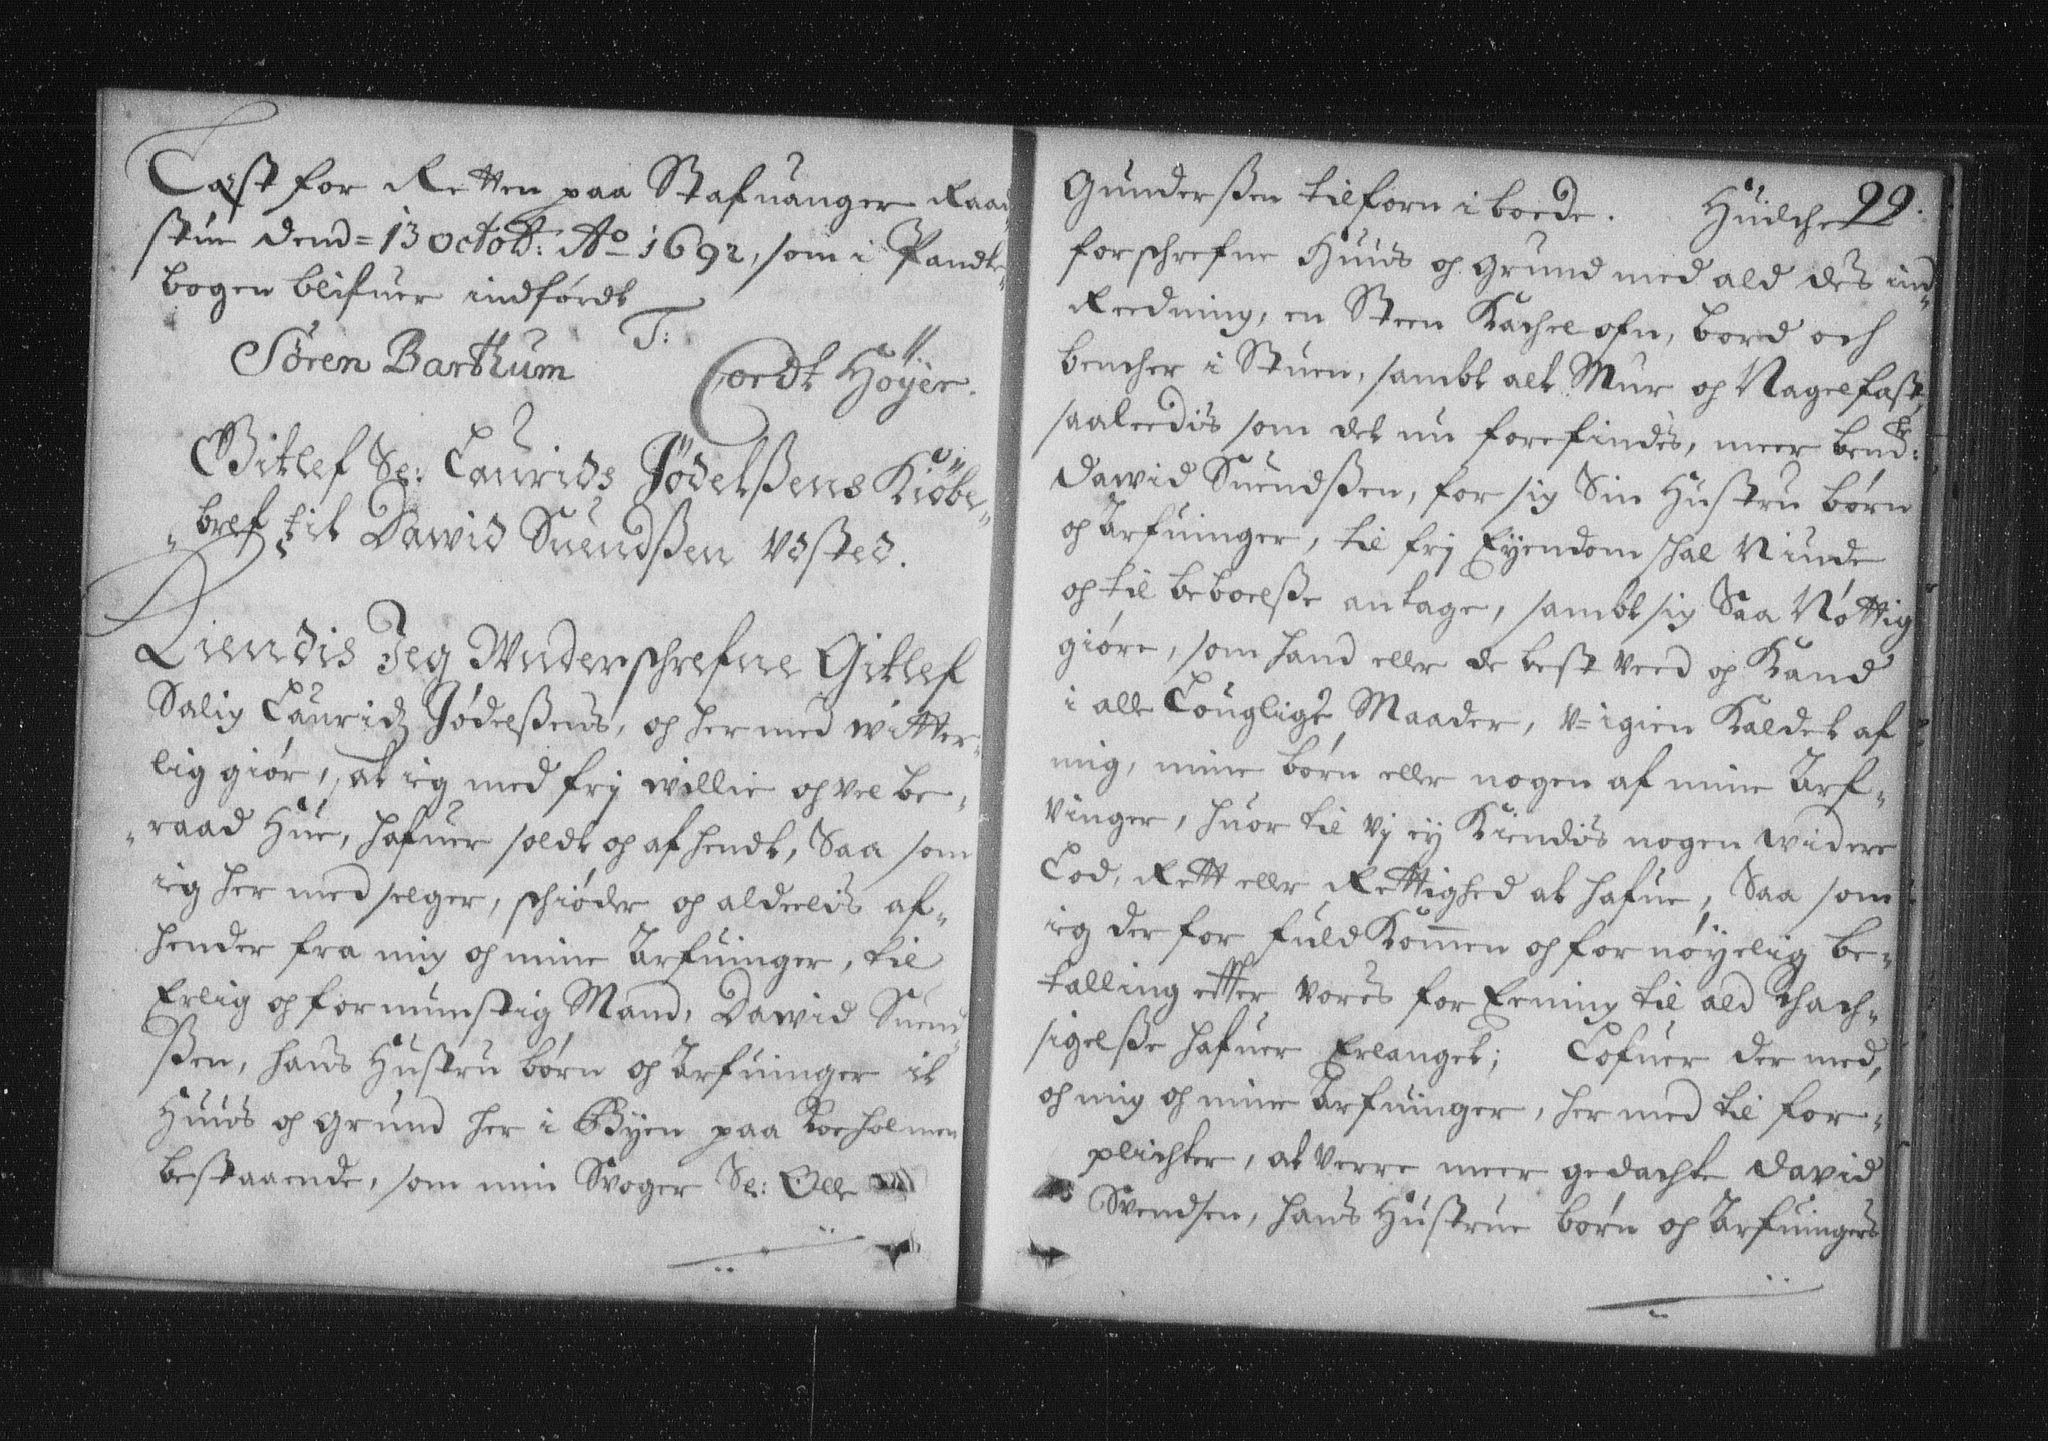 Læst for Retten paa Stafuanger Raad
stue dend= 13 octob: Ao 1692, som i Pandte-
bogen blifuer indfördt
T:
Sören Barthum Cordt Höyer.
Gitlef Sl: Laurids Jödelßens Kiöbe-
bref til Dawid Suendßen udsted.
Kiendis Jeg Underschrefne Gitlef
Salig Lauridz Jödelßens, og her med witter-
lig giör, at ieg med frj willie og vel be-
raad Hue, hafuer soldt og afhendt, Saa som
ieg her med selger, schiöder og aldeelis af-
hender fra mig og mine Arfuinger, til
Erlig og fornumstig Mand, Dawid Suend-
ßen, hans Hustru börn og Arfuinger it
Huus og Grund her i Byen paa Koeholmen
bestaaende, som min Svoger Sl: Olle
Gunderßen tilforn i boede. Huilche 99.
forschrefne Huus og Grund med ald des ind-
Reedning, en Steen Kachelofn, bord och
bencher i Stuen, sambt alt Muur og Nagelfast,
saaleedis som det nu forefindes, meer bend:te
Dawid Suendßen, for sig Sin Hustru börn
og Arfuinger, til frj Eyendom schal Niude
og til beboelße antage, sambt sig Saa Nöttig
giöre, som hand eller de best veed og Kand
i alle Louglige Maader, u=igien Kaldet af
mig, mine börn eller nogen af mine Arf-
vinger, huor til vj ey Kiendis nogen widere
Lod, Rett eller Rettighed at hafue, Saa som
ieg der for fuldkommen og fornöyelig be-
talling etter vores for Eening til ald
sigelße hafuer Erlanget; Lofuer der med,
og mig og mine Arfuinger, her med til for-
plichter, at verre meer gedachte David
Svendsen, hans Hustrue börn og Arfuingers